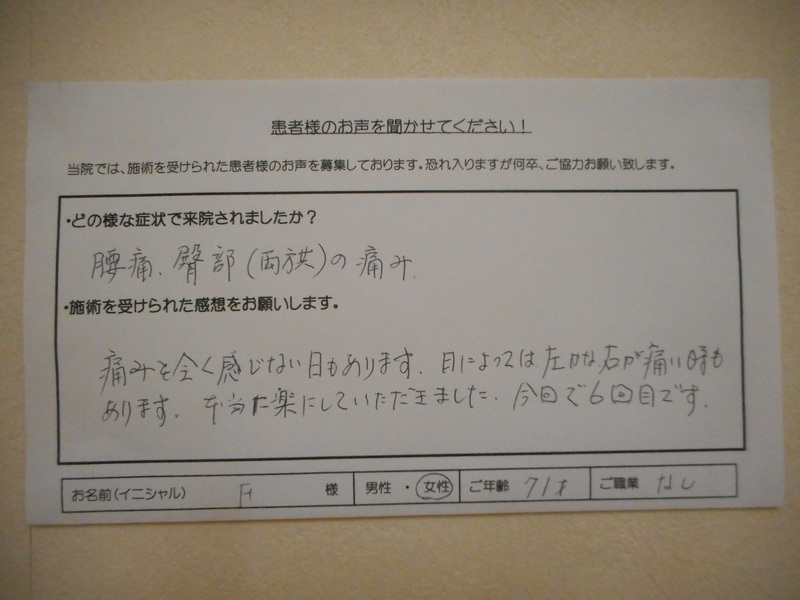 患者様のお声を聞かせてください！
当院では、施術を受けられた患者様のお声を募集しております。恐れ入りますが何卒、ご協力お願い致します。
・どの様な症状で来院されましたか？
腰痛、臀部(両方共)の痛み.
・施術を受けられた感想をお願いします。
痛みを全く感じない日もあります、日によっては左かな、右が痛い時も
あります. 本当に楽にしていただきました、今回で6回目です.
お名前(イニシャル) 様 男性・女性 ご年齢 71才 ご職業 なし